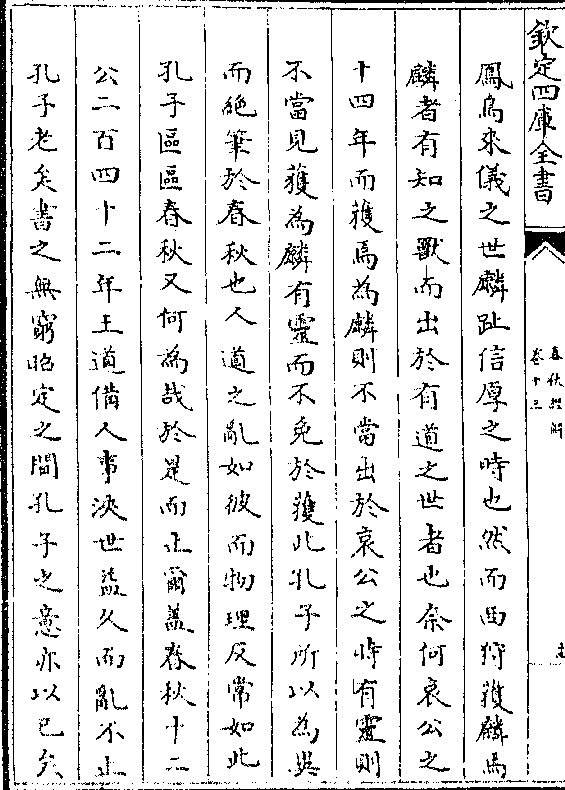 欽定四庫全書
春秋經解
卷十三
鳳鳥來儀之世麟趾信厚之時也然而西狩獲麟焉
麟者有知之獸而出於有道之世者也奈何哀公之
十四年而獲焉為麟則不當出於哀公之時有靈則
不當見獲為麟有靈而不免於獲此孔子所以為異
而絶筆於春秋也人道之亂如彼而物理反常如此
孔子區區春秋又何為哉於是而止爾蓋春秋十二
公二百四十二年王道備人事浹世益久而亂不止
孔子老矣書之無窮昭定之間孔子之意亦以已矣